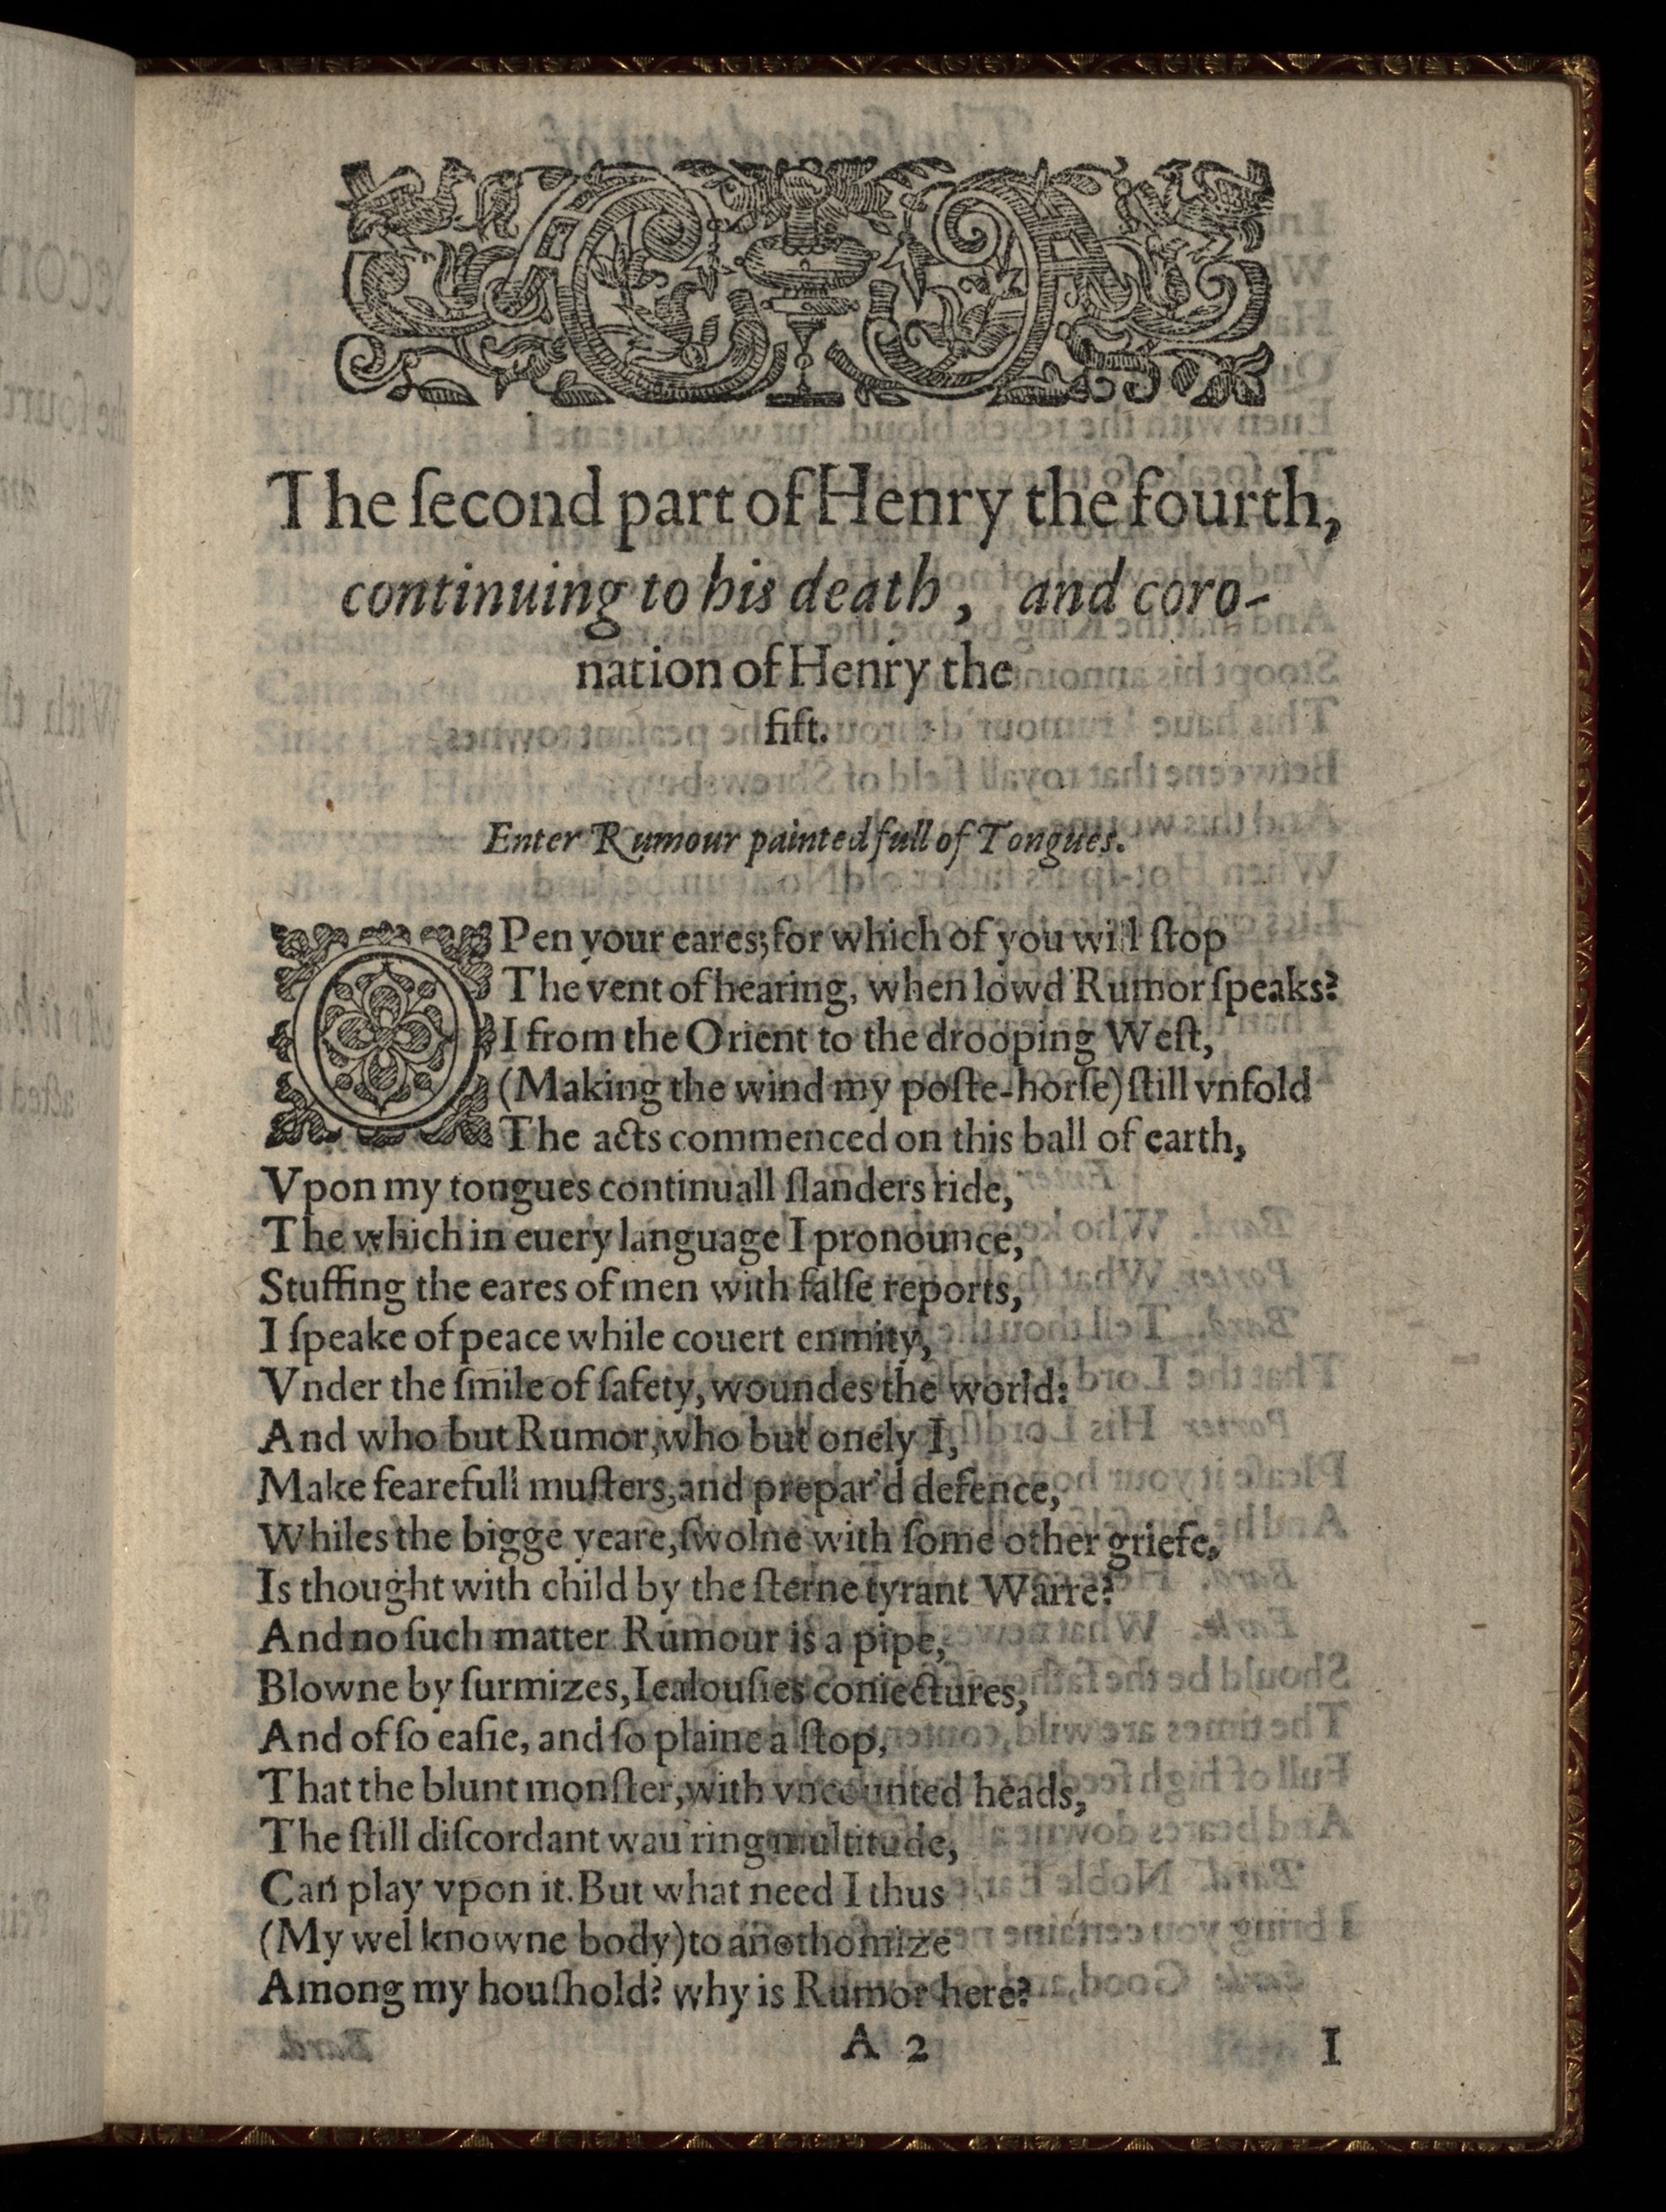 The ſecond part of Henry the fourth,
continuing to his death, and coro-
nation of Henry the
fift.
Enter Rumour painted full of Tongues.
OPen your eares; for which of you will ſtop
The vent of hearing, when lowd Rumor ſpeaks?
I from the Orient to the drooping Weſt,
(Making the wind my poſte-horſe) ſtill vnfold
The acts commenced on this ball of earth,
Vpon my tongues continuall ſlanders ride,
The which in euery language I pronounce,
Stuffing the eares of men with falſe reports,
I ſpeake of peace while couert enmity,
Vnder the ſmile of ſafety, woundes the world:
And who but Rumor, who but onely I,
Make fearefull muſters, and prepar'd defence,
Whiles the bigge yeare, ſwolne with ſome other griefe,
Is thought with child by the ſterne tyrant Warre?
And no ſuch matter Rumour is a pipe,
Blowne by ſurmizes, Iealouſies coniectures,
And of ſo eaſie, and ſo plaine a ſtop,
That the blunt monſter, with vncounted heads,
The ſtill diſcordant wau'ring multitude,
Can play vpon it. But what need I thus
(My wel knowne body) to anothomize
Among my houſhold? why is Rumor here?
A 2 I